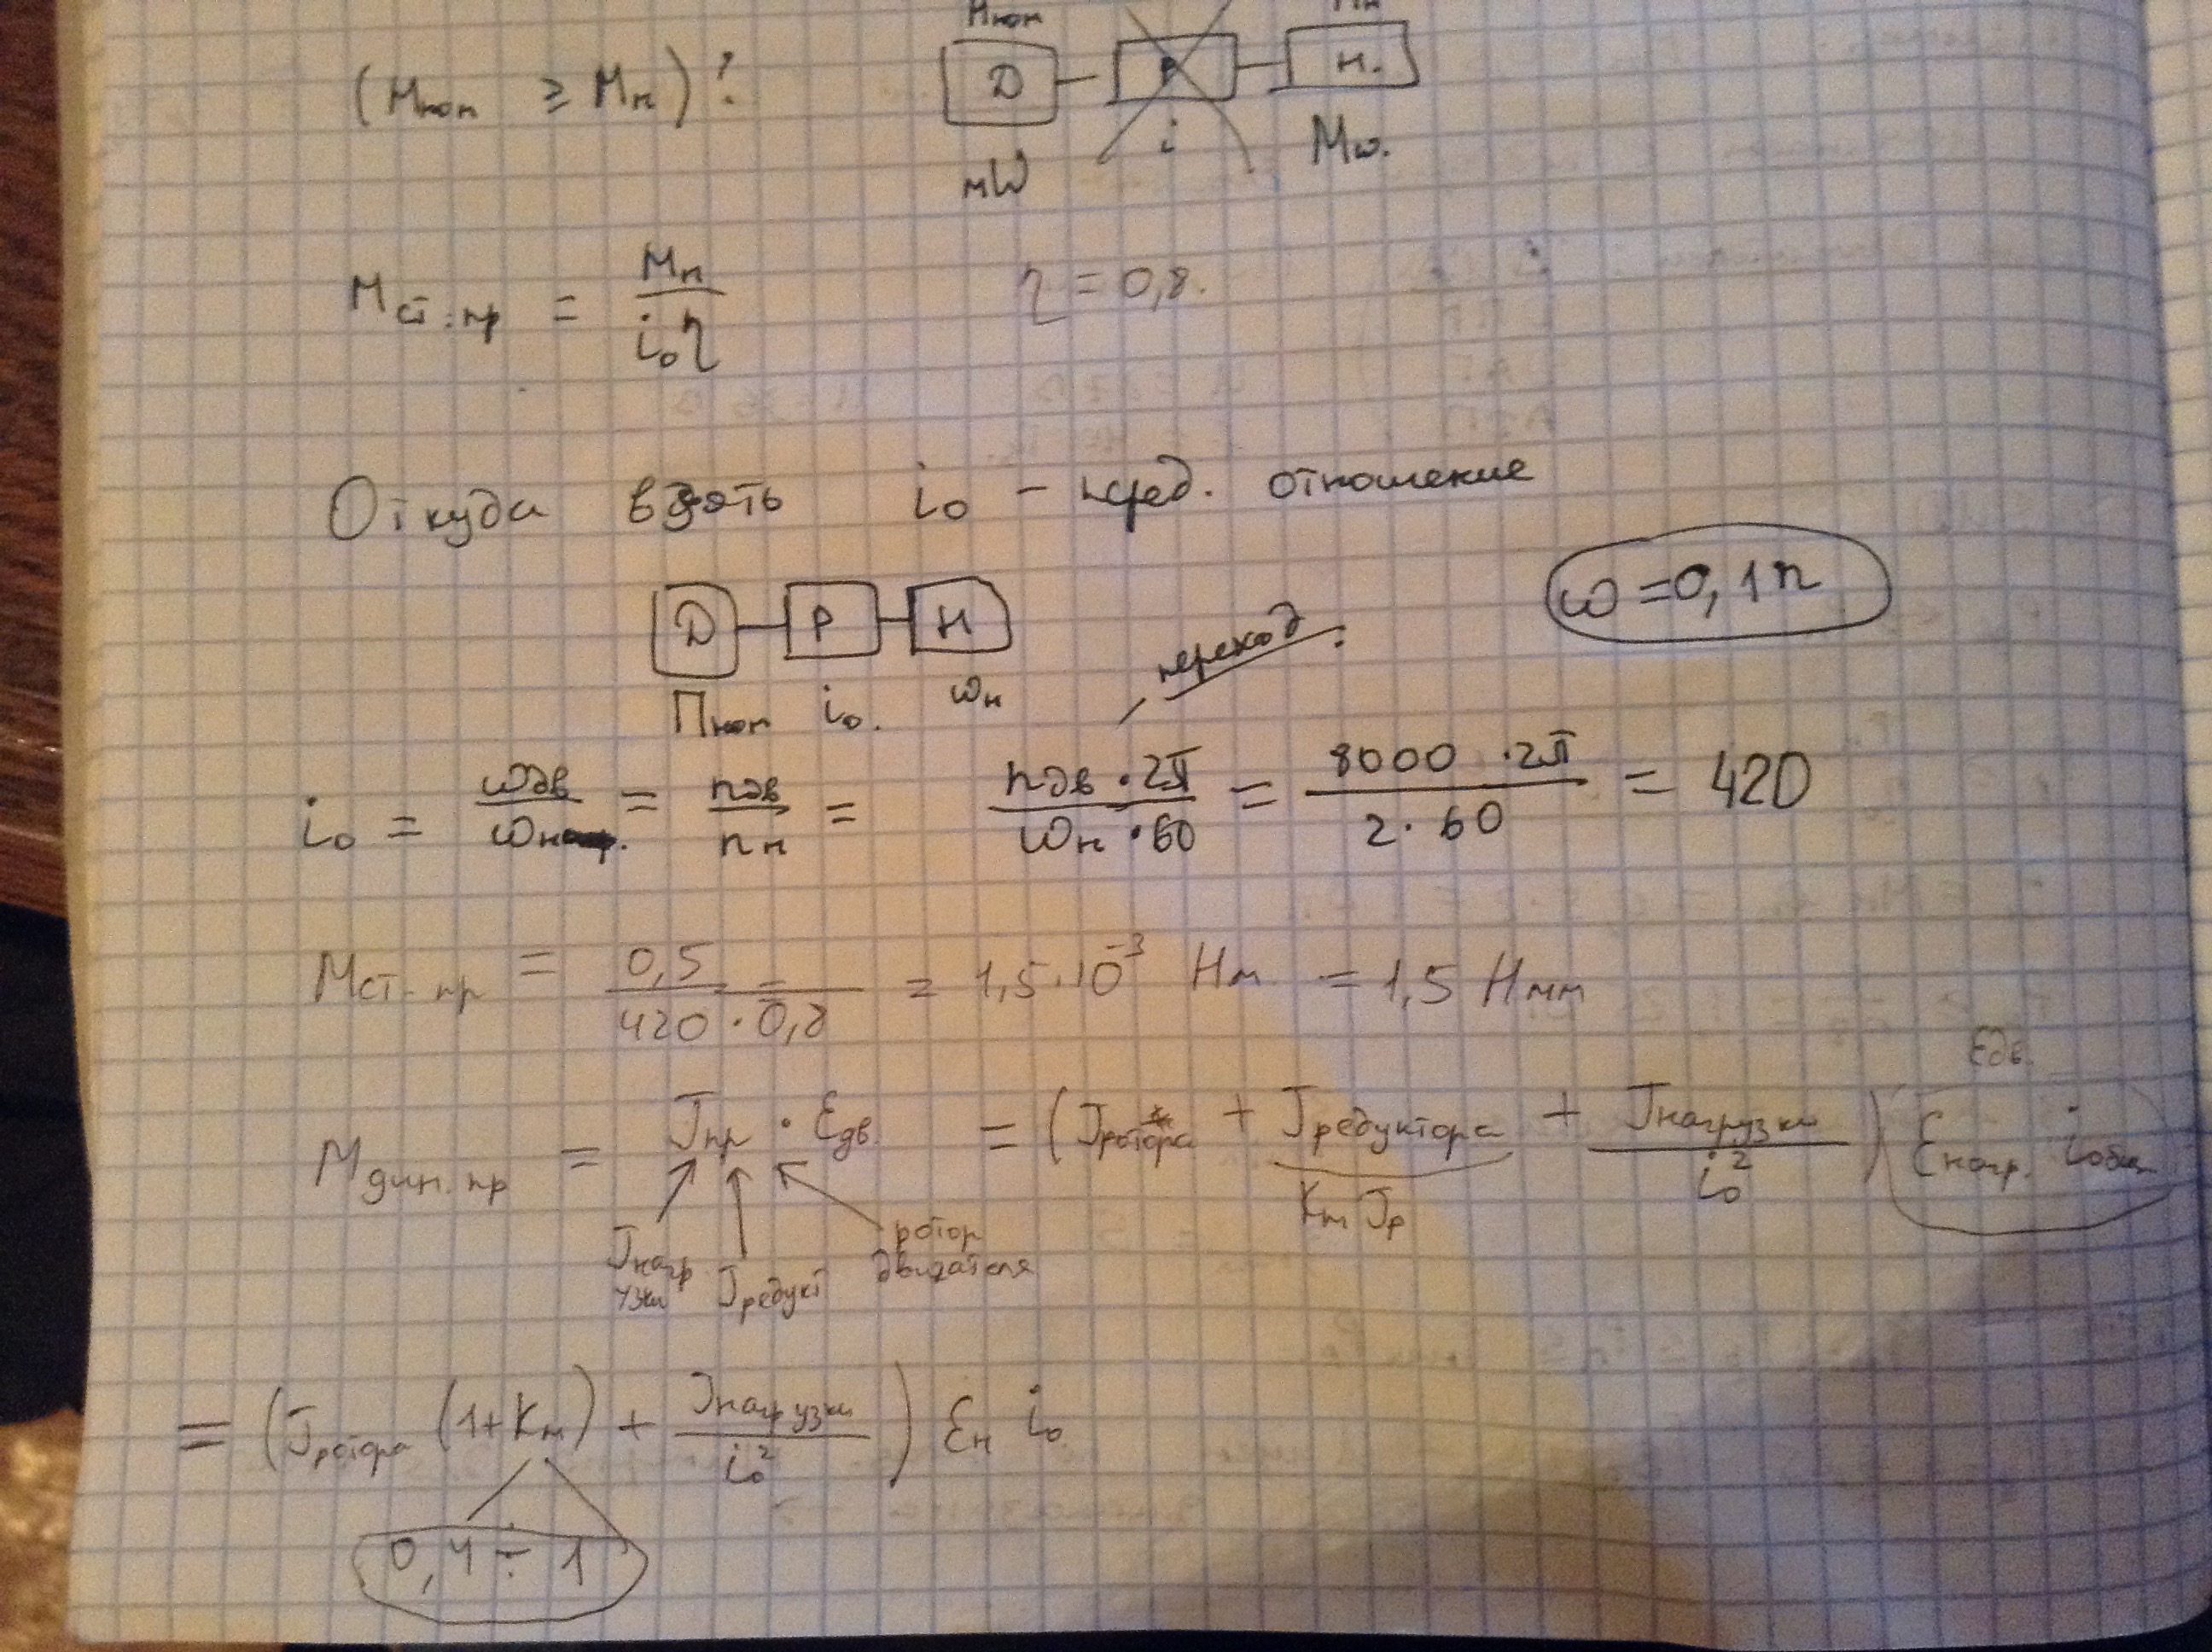 Mном Mн
(Mном ≥ Mн)?
Д Р Н.
мW i Mω.
Mст.пр = Mн / i₀η η = 0,8.
Откуда взять i₀ – перед. отношение
ω = 0,1n
Д Р Н
Пном i₀. ωн
переход
i₀ = ωдв / ωн = nдв / nн = nдв · 2π / ωн · 60 = 8000 · 2π / 2 · 60 = 420
Mст.пр = 0,5 / 420 · 0,8 = 1,5·10⁻³ Нм = 1,5 Нмм
Eдв.
Mдин.пр = Jпр · Eдв = (Jротора + Jредуктора + Jнагрузки / i₀²) Eнагр. i₀
Kм Jр
Jнагр
узки
Jредукт
ротор
двигателя
= (Jротора (1+Kм) + Jнагрузки / i₀²) Eн i₀
0,4 ÷ 1